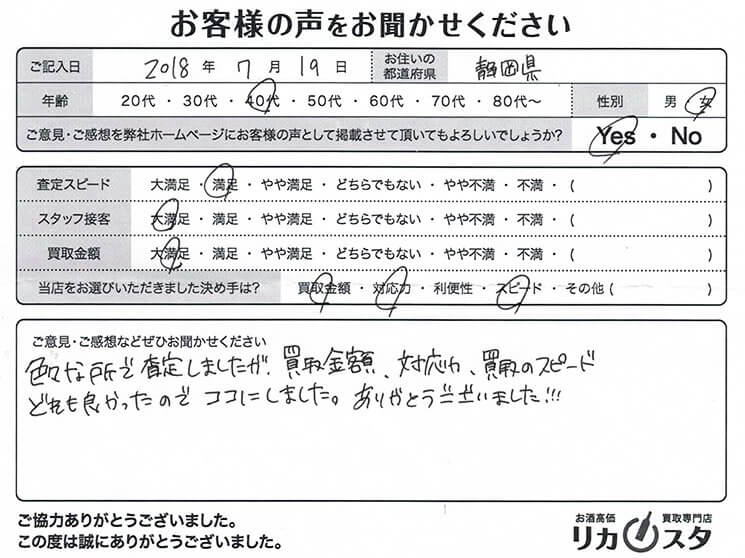 お客様の声をお聞かせください
ご記入日 2018 年 7 月 19 日 お住いの都道府県 静岡県
年齢 20代 ・ 30代 ・ 40代 ・ 50代 ・ 60代 ・ 70代 ・ 80代～ 性別 男 女
ご意見・ご感想を弊社ホームページにお客様の声として掲載させて頂いてもよろしいでしょうか? Yes ・ No
査定スピード 大満足 ・ 満足 ・ やや満足 ・ どちらでもない ・ やや不満 ・ 不満 ・ ( )
スタッフ接客 大満足 ・ 満足 ・ やや満足 ・ どちらでもない ・ やや不満 ・ 不満 ・ ( )
買取金額 大満足 ・ 満足 ・ やや満足 ・ どちらでもない ・ やや不満 ・ 不満 ・ ( )
当店をお選びいただきました決め手は? 買取金額 ・ 対応力 ・ 利便性 ・ スピード ・ その他 ( )
ご意見・ご感想などぜひお聞かせください
色々な所で査定しましたが、買取金額、対応力、買取のスピード
どれも良かったので ココにしました。ありがとうございました!!!
ご協力ありがとうございました。
この度は誠にありがとうございました。
お酒高価 買取専門店
リカスタ